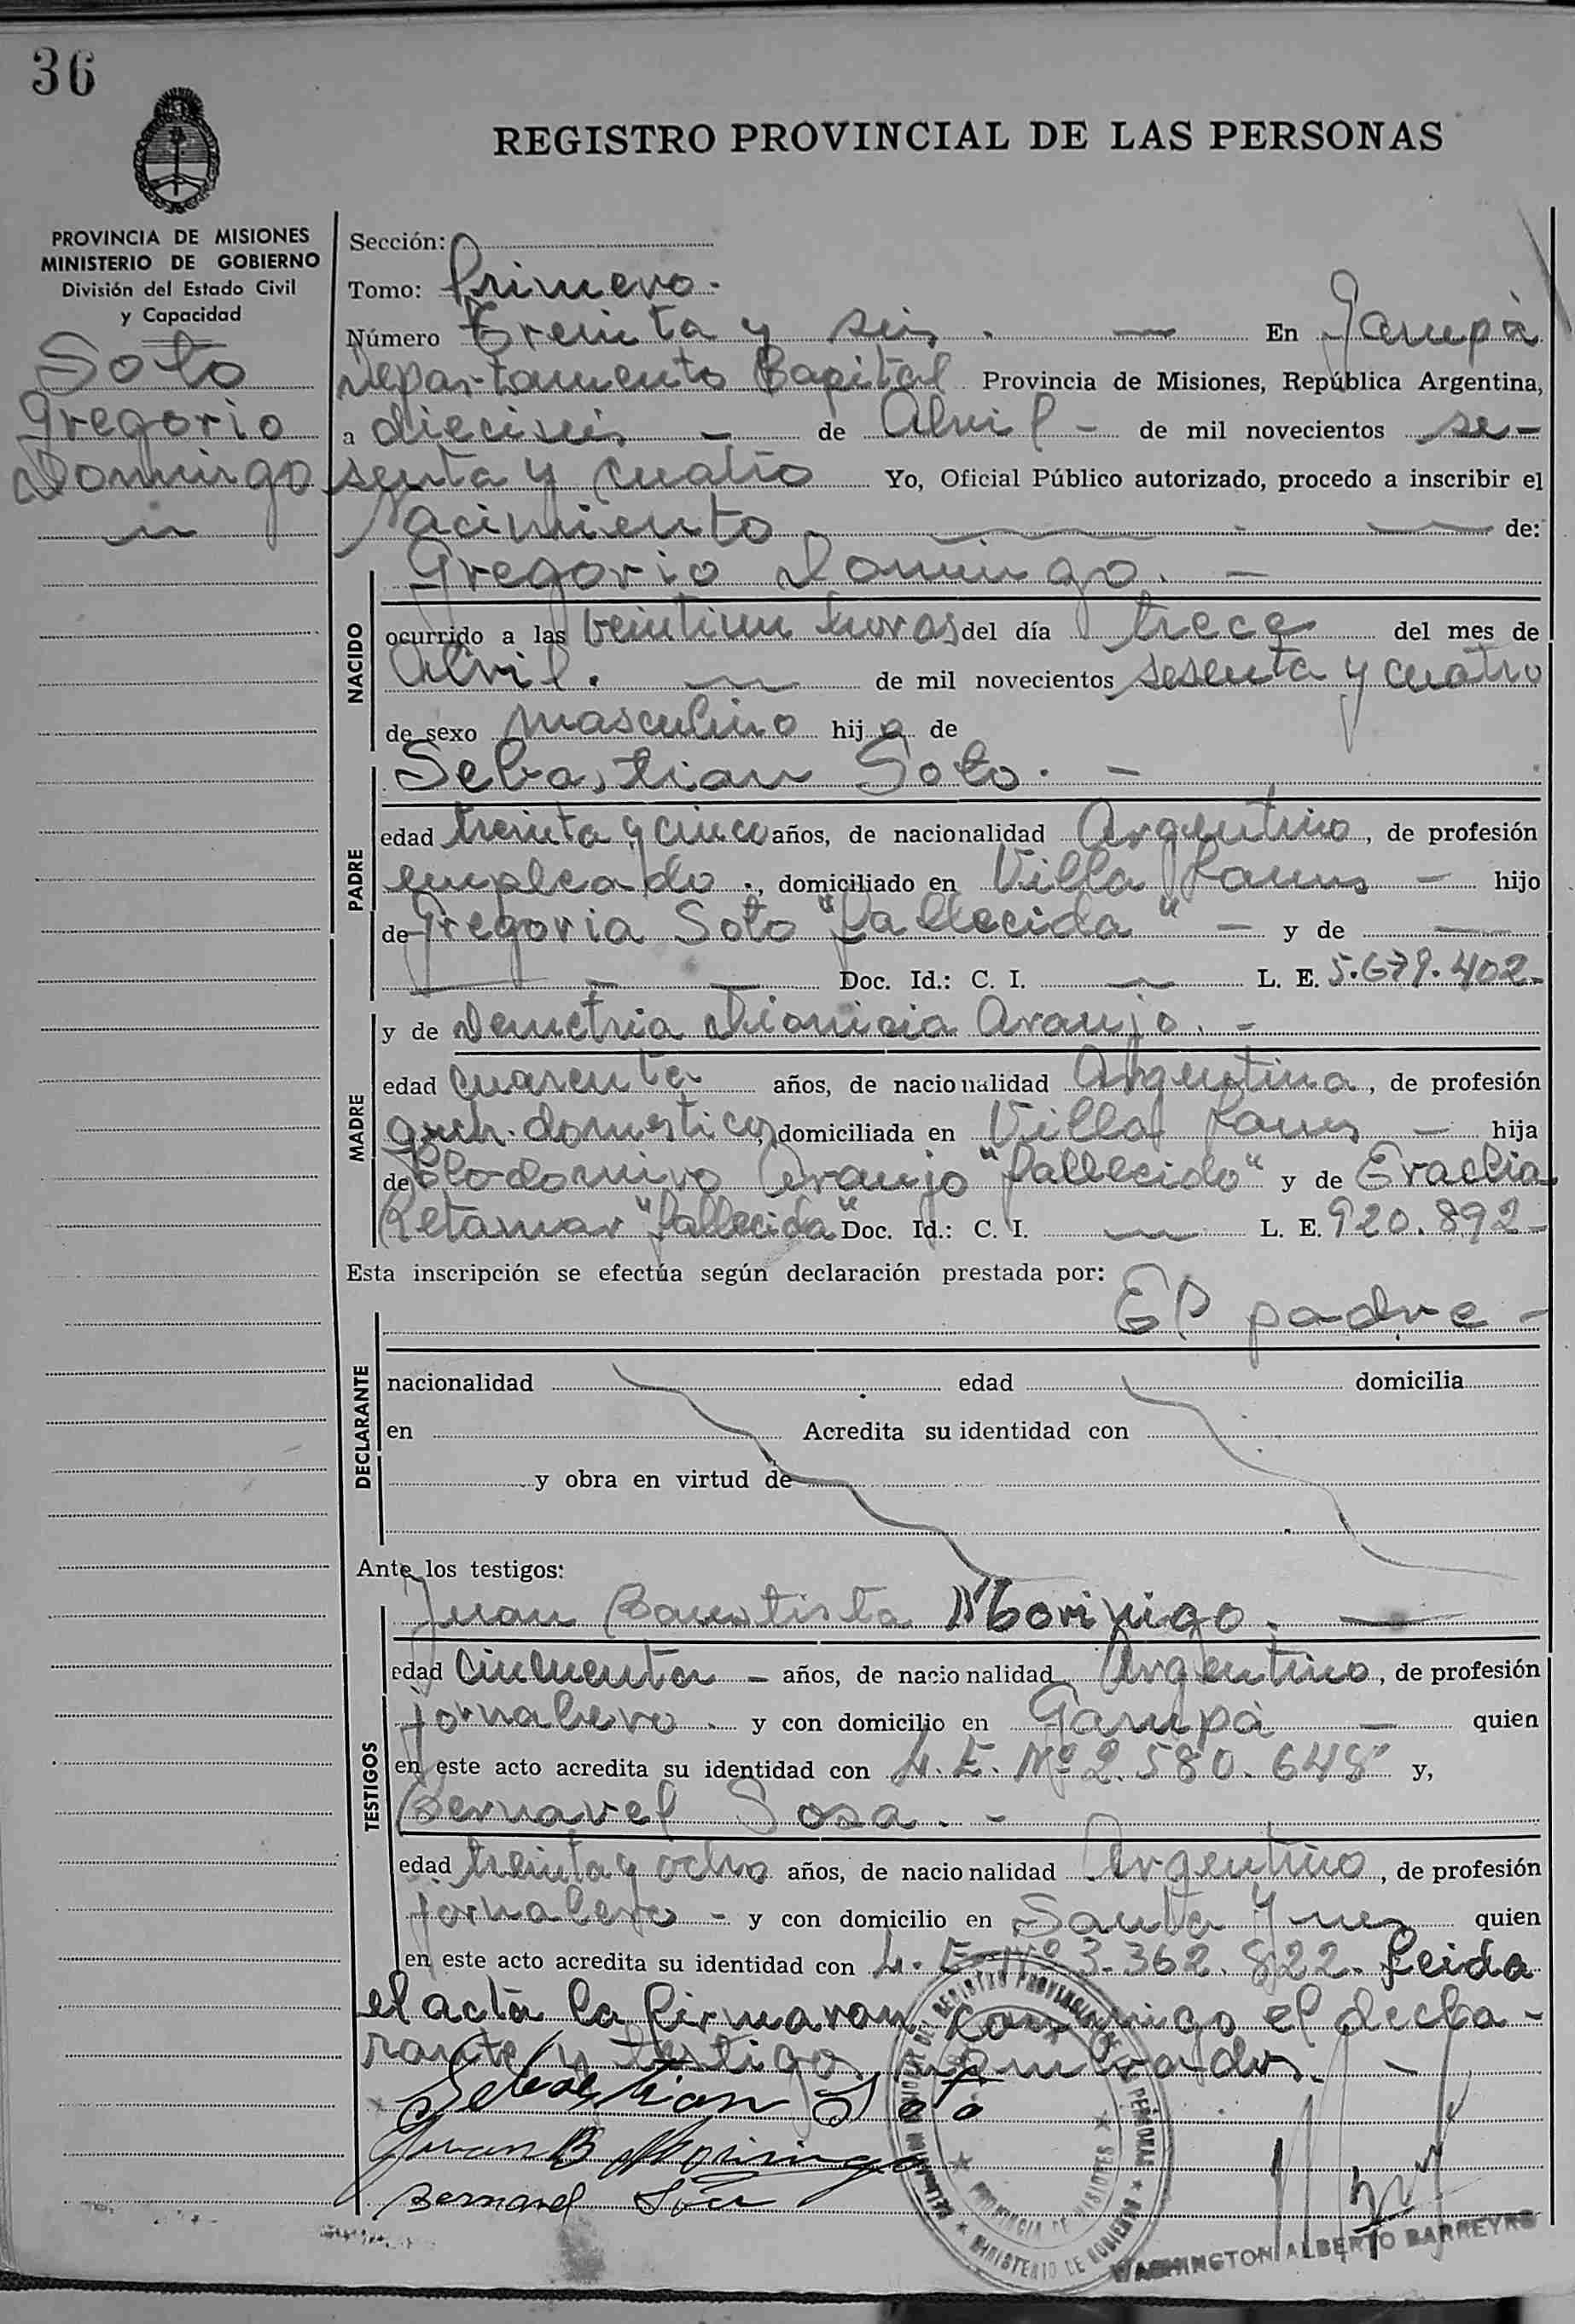 36
REGISTRO PROVINCIAL DE LAS PERSONAS
PROVINCIA DE MISIONES
MINISTERIO DE GOBIERNO
División del Estado Civil
y Capacidad
Soto
Gregorio
Domingo
Sección:
Tomo: Primero.
Número Treinta y seis. En Garupà
Departamento Capital Provincia de Misiones, República Argentina,
a dieciseis de Abril de mil novecientos se-
senta y cuatro Yo, Oficial Público autorizado, procedo a inscribir el
Nacimiento de:
Gregorio Domingo. -
NACIDO
ocurrido a las veintiun horas del día trece del mes de
Abril. de mil novecientos sesenta y cuatro
de sexo masculino hijo de
Sebastian Soto. -
PADRE
edad treinta y cinco años, de nacionalidad Argentino, de profesión
empleado., domiciliado en Villa Lanus - hijo
de Gregoria Soto "fallecida" - y de
Doc. Id.: C. I. L. E. 5.679.402-
MADRE
y de Demetria Dionicia Araujo. -
edad cuarenta años, de nacionalidad Argentina, de profesión
queh. domesticos, domiciliada en Villa Lanus - hija
de Clodomiro Araujo "fallecido" y de Eraclia
Retamar "fallecida" Doc. Id.: C. I. L. E. 920.892-
Esta inscripción se efectúa según declaración prestada por:
El padre -
DECLARANTE
nacionalidad edad domicilia
en Acredita su identidad con
y obra en virtud de
Ante los testigos:
Juan Bautista Morinigo.
TESTIGOS
edad cincuenta - años, de nacionalidad Argentino, de profesión
jornalero. y con domicilio en Garupà quien
en este acto acredita su identidad con L. E. Nº 2.580.648 y,
Bernavel Sosa. -
edad treinta y ocho años, de nacionalidad Argentino, de profesión
jornalero - y con domicilio en Santa Ynes quien
en este acto acredita su identidad con L. E. Nº 3.362.822. Leida
el acta la firmaron conmigo el decla-
rante y testigos nombrados. -
Sebastian Soto
Juan B Morinigo
Bernavel Sosa
REGISTRO PROVINCIAL DE LAS PERSONAS
PROVINCIA DE MISIONES
MINISTERIO DE GOBIERNO
WASHINGTON ALBERTO BARREYRO